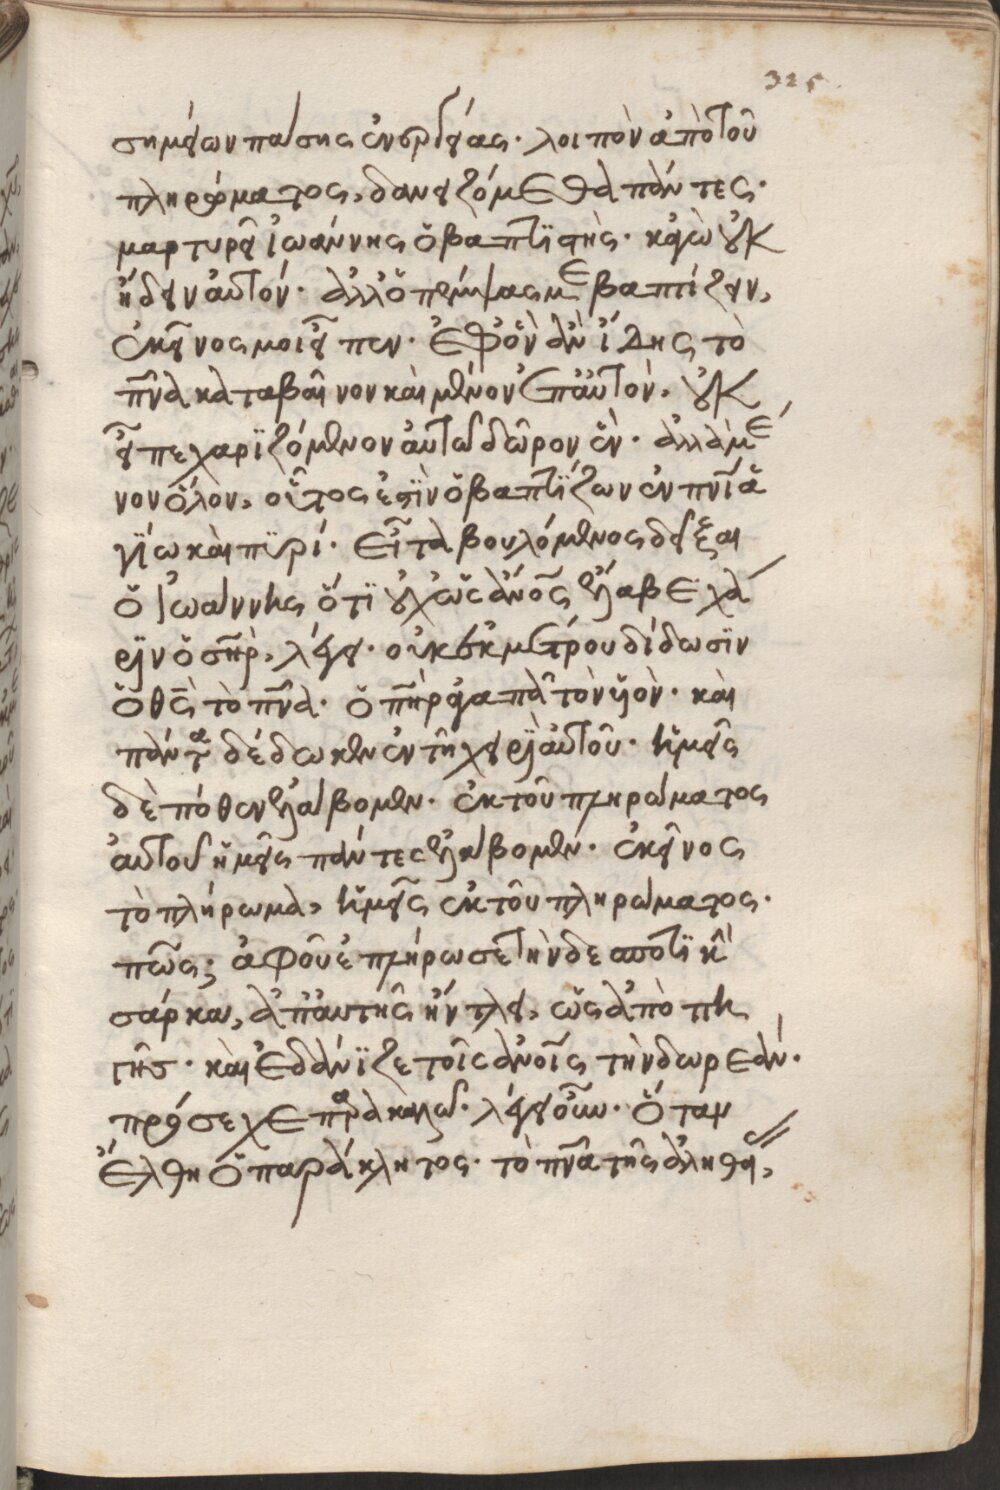 325
σημείων πάσης ἐνεργείας· λοιπὸν ἀπὸ τοῦ
πληρώματος, δανειζόμεθα πάντες·
μαρτυρεῖ ἰωάννης ὁ βαπτϊστὴς· κἀγὼ οὐκ
ἤδειν ἀυτόν· ἀλλ ὁ πέμψας με βαπτίζειν,
ἐκεῖνος μοι εἶπεν· ἐφ ὃν ἂν ἴδης τὸ
πνα καταβαῖνον καὶ μένον ἐπ ἀυτὸν, οὐκ
εἶπε χαριζόμενον ἀυτῶ δῶρον ἓν· ἀλλὰ μέ
νον ὅλον, οὗτος ἐστϊν ὁ βαπτϊζων ἐν πνϊ ἁ
γίω καὶ πϋρί· εἶτα βουλόμενος δεῖξαι
ὁ ἰωάννης ὅτϊ οὐχ ὡς ανος ἔλαβε χά
ριν ὁ σηρ, λέγει· οὐκ ἐκ μέτρου δίδωσϊν
ὁ θς τὸ πνα· ὁ πηρ ἀγαπᾶ τὸν υἱὸν· καὶ
πάντα δέδωκεν ἐν τῆ χειρὶ ἀυτοῦ· ἡμεῖς
δὲ πόθεν ἐλάβομεν· ἐκ τοῦ πληρώματος
ἀυτοῦ ἡμεῖς πάντες ἐλάβομεν· ἐκεῖνος
τὸ πλήρωμα, ἡμεῖς ἐκ τοῦ πληρώματος·
πῶς; ἀφ οὗ ἐπλήρωσε τὴν δεσποτϊκὴ
σάρκαν, ἀπ ἀυτῆς ἤντλει, ὡς ἀπὸ πη
γῆς· καὶ ἐδάνϊζε τοῖς ανοις τὴν δωρεάν·
πρόσεχε παρακαλῶ· λέγει οὖν· ὅταν
ἔλθη ὁ παράκλητος· τὸ πνα τῆς ἀληθεί,